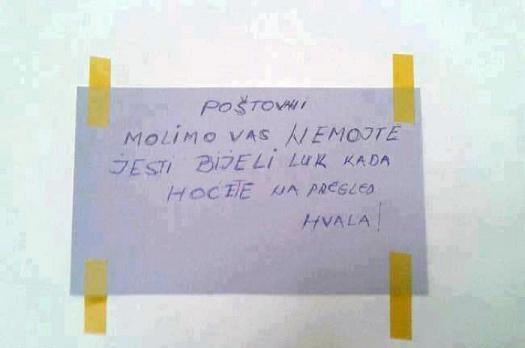 POŠTOVANI
MOLIMO VAS NEMOJTE
JESTI BIJELI LUK KADA
HOĆETE NA PREGLED
HVALA!